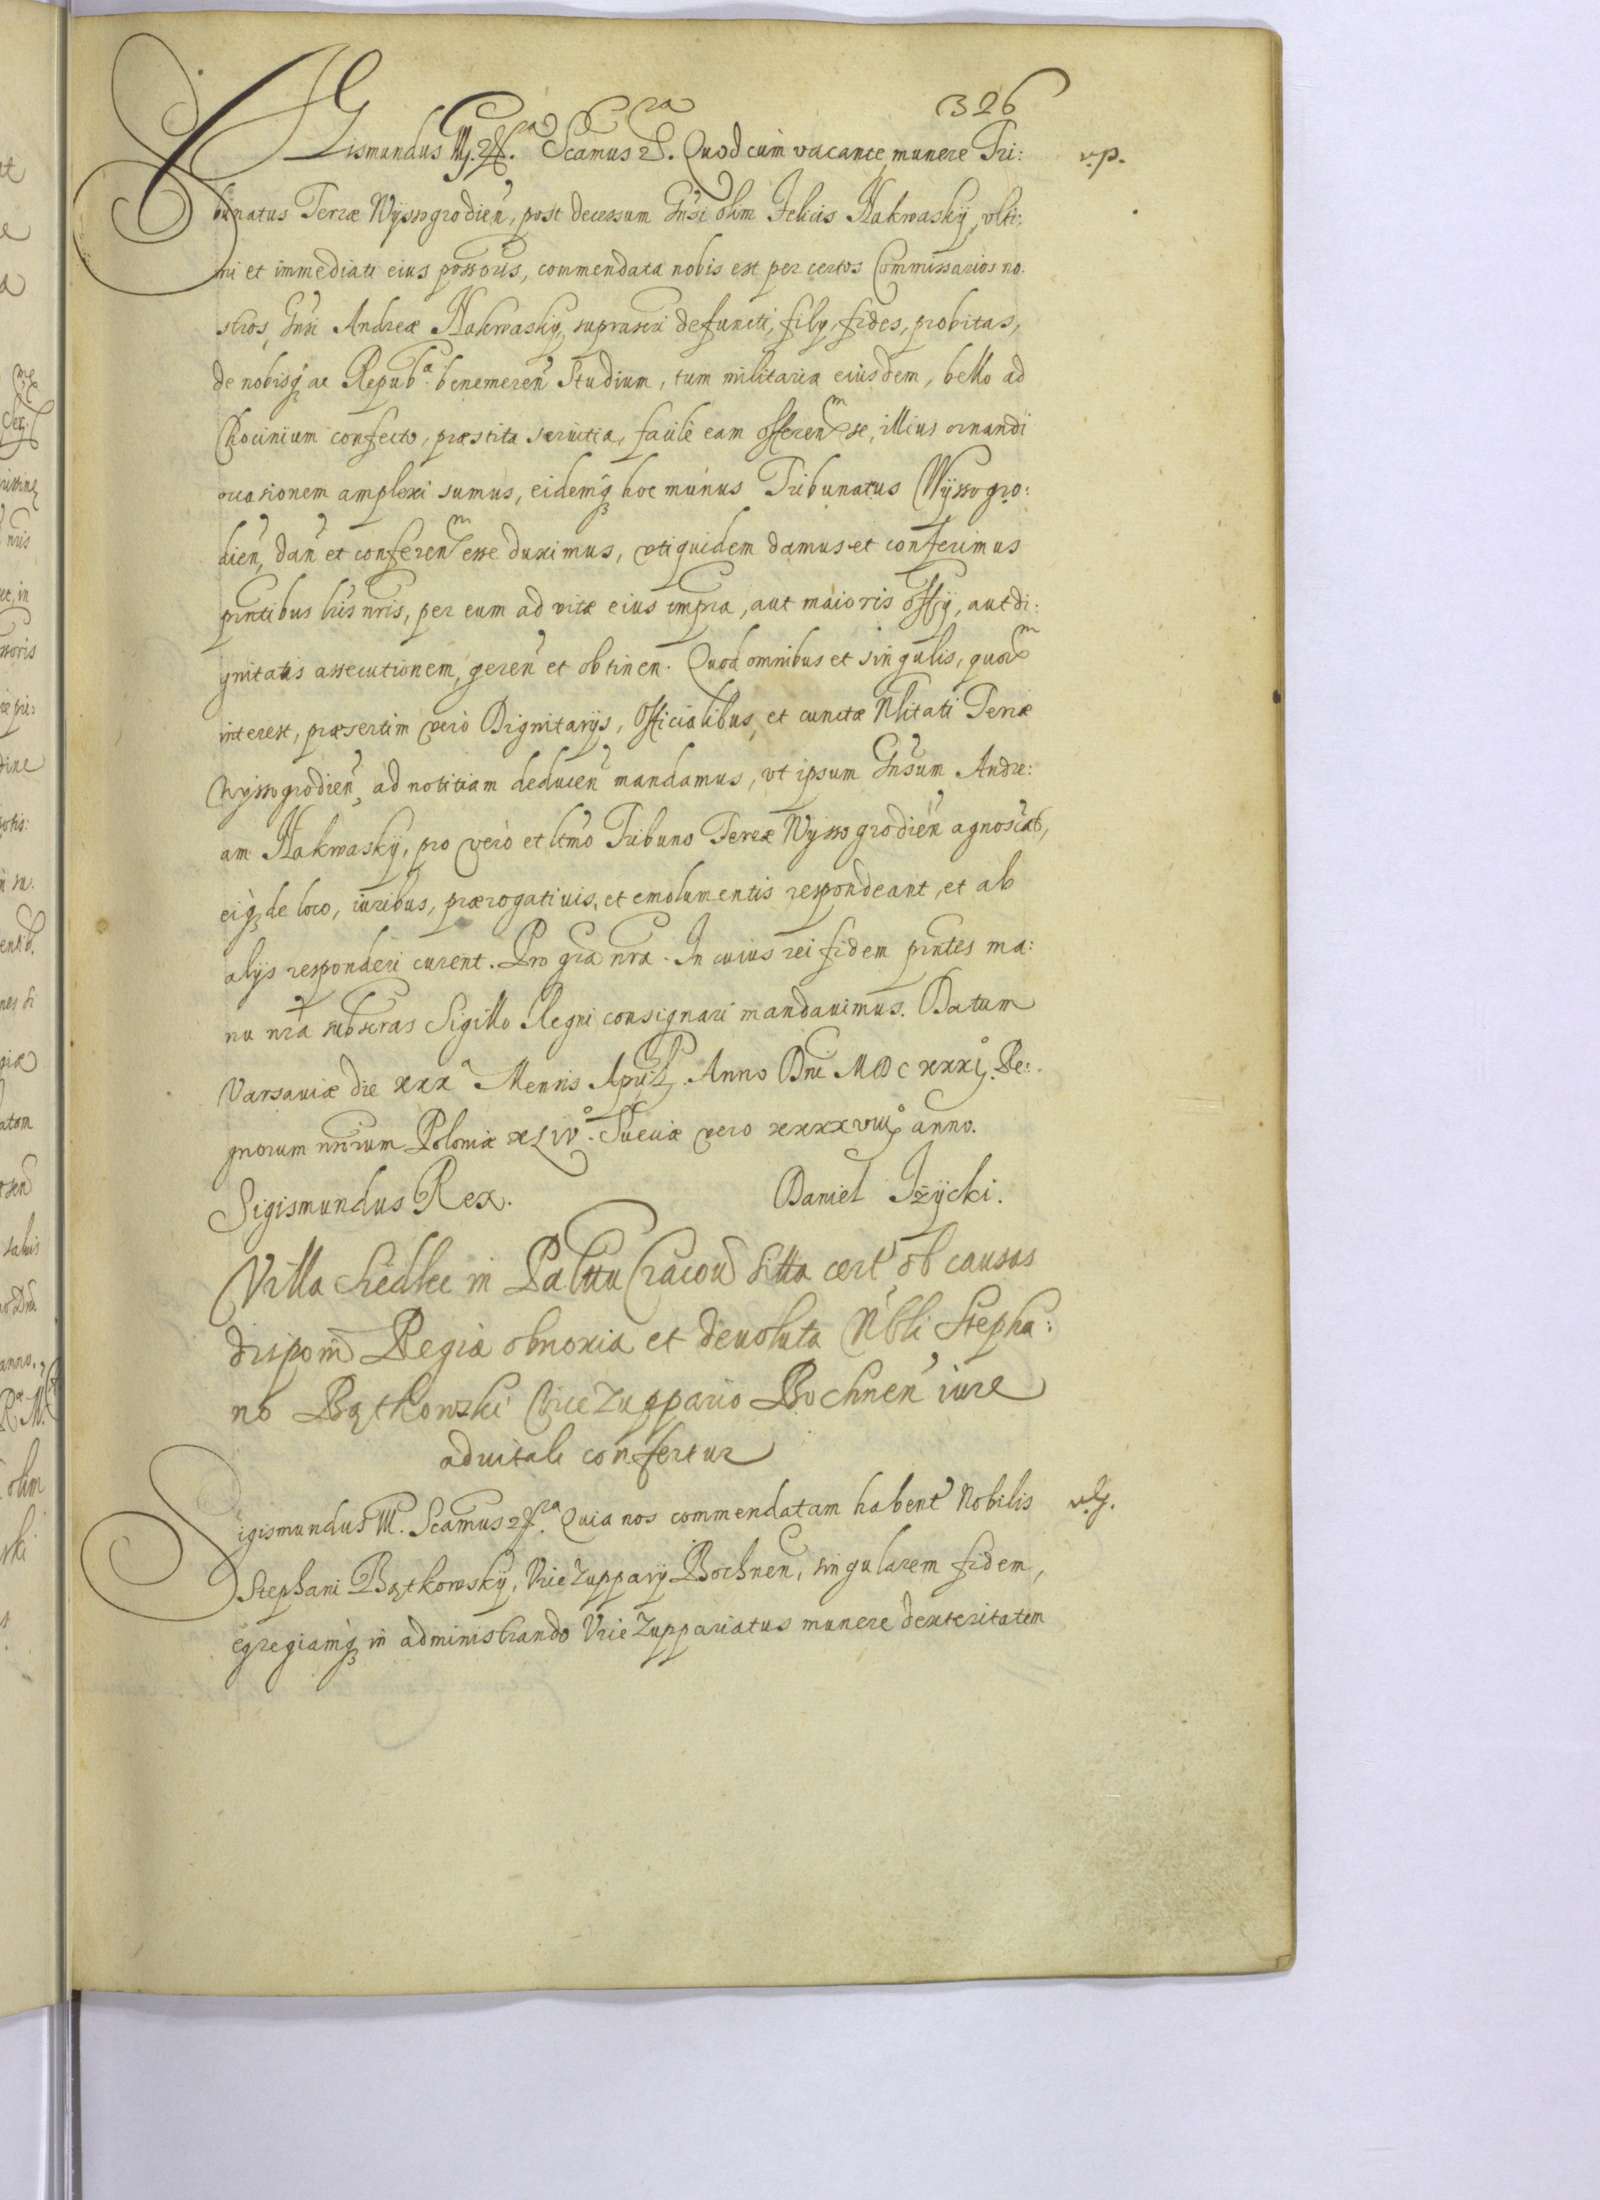 326
Sigismundus III. etc. Scamus etc. Quod cum vacante munere Tri: v.p.
bunatus Terræ Wyssogrodień, post decessum Gnsi olim Felicis Nakwasky, vlti:
mi et immediati eius possoris, commendata nobis est per certos Commissarios no.
stros, Gnsi Andreæ Nakwasky, suprascri defuncti, filij, fides, probitas,
de nobisq ac Repuba. benemeren Studium, tum militaria eiusdem, bello ad
Chocinium confecto, præstita seruitia, facile eam offerenm se, illius ornandi
occasionem amplexi sumus, eidemq hoc munus Tribunatus Wyssogro:
dien, dan et conferenm esse duximus, vti quidem damus et conferimus
pntibus lris nris, per eum ad vitæ eius tempra, aut maioris offij, aut di:
gnitatis assecutionem, geren et obtinen. Quod omnibus et singulis, quorm
interest, præsertim vero Dignitarijs, Officialibus, et cunctæ Nlitati Terræ
Wyssogrodien, ad notitiam deducen mandamus, vt ipsum Gnsum Andre:
am Nakwasky, pro vero et ltmo Tribuno Terræ Wyssogrodien agnoscat,
eiq de loco, iuribus, prærogatiuis, et emolumentis respondeant, et ab
alijs responderi curent. Pro gra nra. In cuius rei fidem pntes ma:
nu nra subscras Sigillo Regni consignari mandauimus. Datum
Varsauiæ die xxxa Mensis Aprilis. Anno Dni MDCxxxj. Re:
gnorum nrorum Poloniæ xLIVo. Sueciæ vero xxxxviijo anno.
Sigismundus Rex. Daniel Iżycki.
Villa Siedlec in Palttu Cracou sitta cert ob causas
disponi Regiæ obnoxia et deuoluta Nbli Stepha:
no Bątkowski ViceZuppario Bochnen iure
aduitali confertur
Sigismundus III. Scamus etc. Quia nos commendatam haben Nobilis v.g.
Stephani Bątkowsky, ViceZupparij Bochnen, singularem fidem,
egregiamq in administrando ViceZuppariatus munere dexteritatem